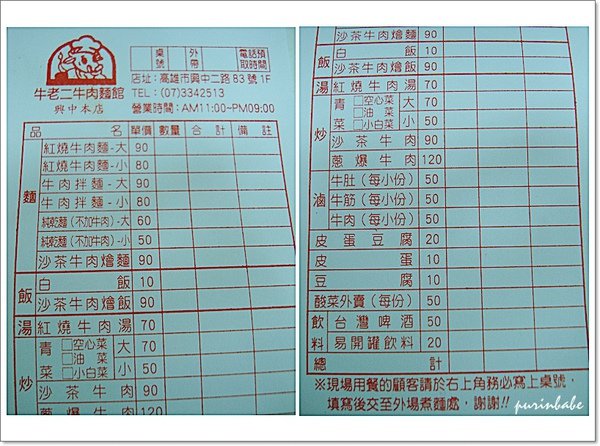 桌號
外帶
電話預取時間
店址:高雄市興中二路83號1F
牛老二牛肉麵館
TEL:(07)3342513
興中本店
營業時間:AM11:00~PM09:00
品名 單價 數量 合計 備註
麵
紅燒牛肉麵-大 90
紅燒牛肉麵-小 80
牛肉拌麵-大 90
牛肉拌麵-小 80
純乾麵(不加牛肉)-大 60
純乾麵(不加牛肉)-小 50
沙茶牛肉燴麵 90
飯
白飯 10
沙茶牛肉燴飯 90
湯 紅燒牛肉湯 70
炒
青菜 □空心菜 □油菜 □小白菜 大 70
小 50
沙茶牛肉 90
蔥爆牛肉 120
沙茶牛肉燴麵 90
飯
白飯 10
沙茶牛肉燴飯 90
湯 紅燒牛肉湯 70
炒
青菜 □空心菜 □油菜 □小白菜 大 70
小 50
沙茶牛肉 90
蔥爆牛肉 120
滷
牛肚(每小份) 50
牛筋(每小份) 50
牛肉(每小份) 50
皮蛋豆腐 20
皮蛋 10
豆腐 10
酸菜外賣(每份) 50
飲料
台灣啤酒 50
易開罐飲料 20
總計
※現場用餐的顧客請於右上角務必寫上桌號,
填寫後交至外場煮麵處,謝謝!!
purinbabe